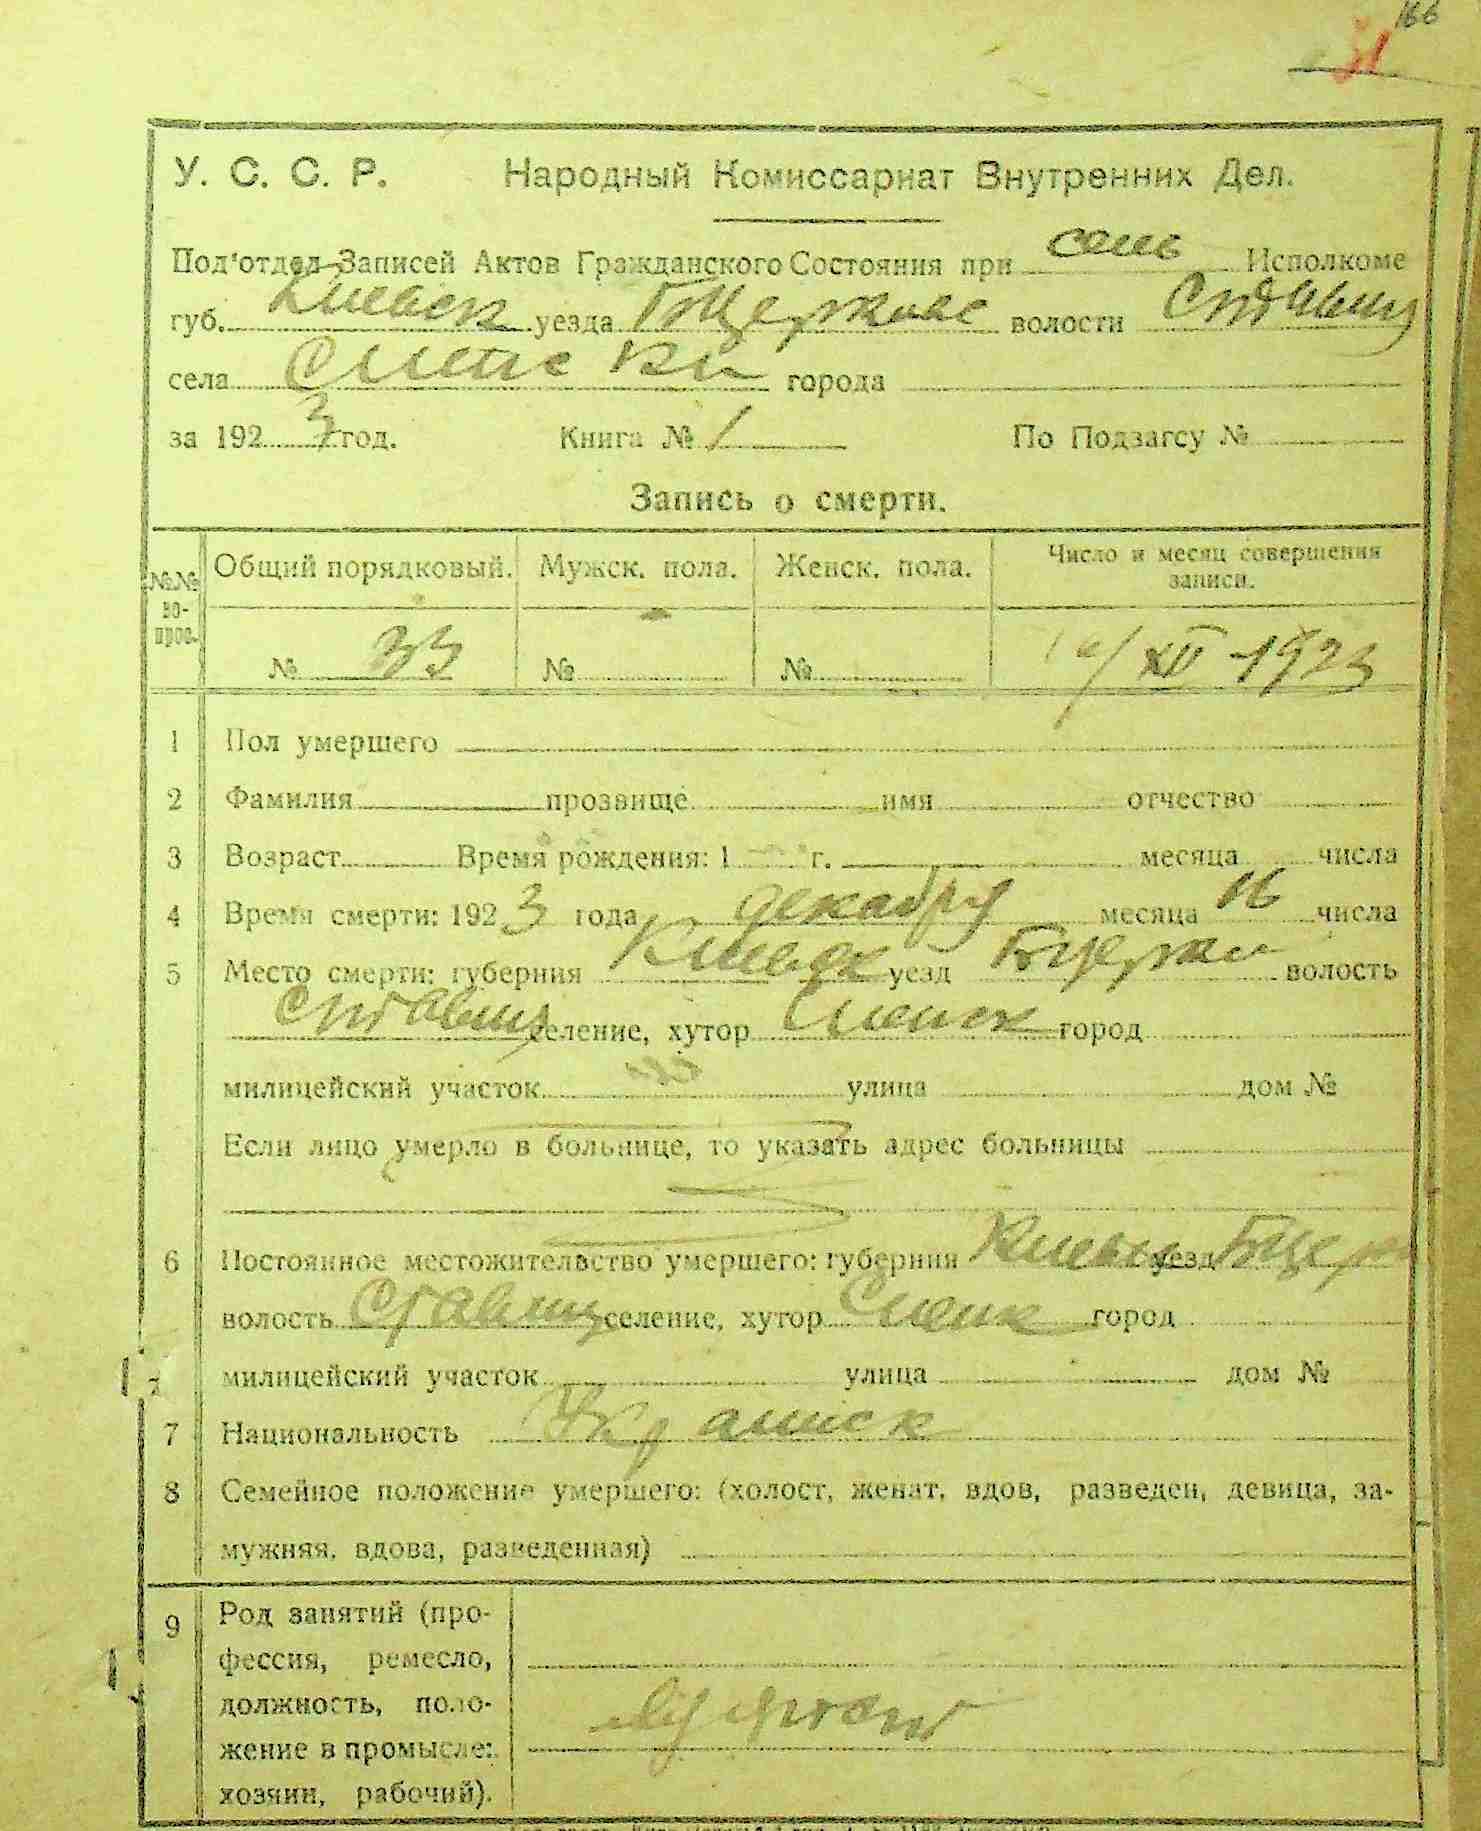 166
У. С. С. Р. Народный Комиссариат Внутренних Дел.
Под'отдел Записей Актов Гражданского Состояния при сель Исполкоме
губ. Киевск уезда Бцеркове волости Ставищ
села города
за 1923 год. Книга № 1 По Подзагсу №
Запись о смерти.
№№ вопрос. Общий порядковый. Мужск. пола. Женск. пола. Число и месяц совершения записи.
№ 33 № № XII 1923
1 Пол умершего
2 Фамилия прозвище имя отчество
3 Возраст Время рождения: 1 г. месяца числа
4 Время смерти: 1923 года декабру месяца 16 числа
5 Место смерти: губерния Киевск уезд Бцерки волость
Ставищ селение, хутор город
милицейский участок улица дом №
Если лицо умерло в больнице, то указать адрес больницы
6 Постоянное местожительство умершего: губерния Киевск уезд Бцер
волость Ставищ селение, хутор город
милицейский участок улица дом №
7 Национальность Украинск
8 Семейное положение умершего: (холост, женат, вдов, разведен, девица, за-
мужняя, вдова, разведенная)
9 Род занятий (про-
фессия, ремесло,
должность, поло-
жение в промысле:
хозяин, рабочий).